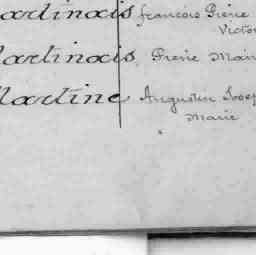 artinais françois Pierre
Victor
artinais Pierre Mari
Martine Augustin Josep
Marie